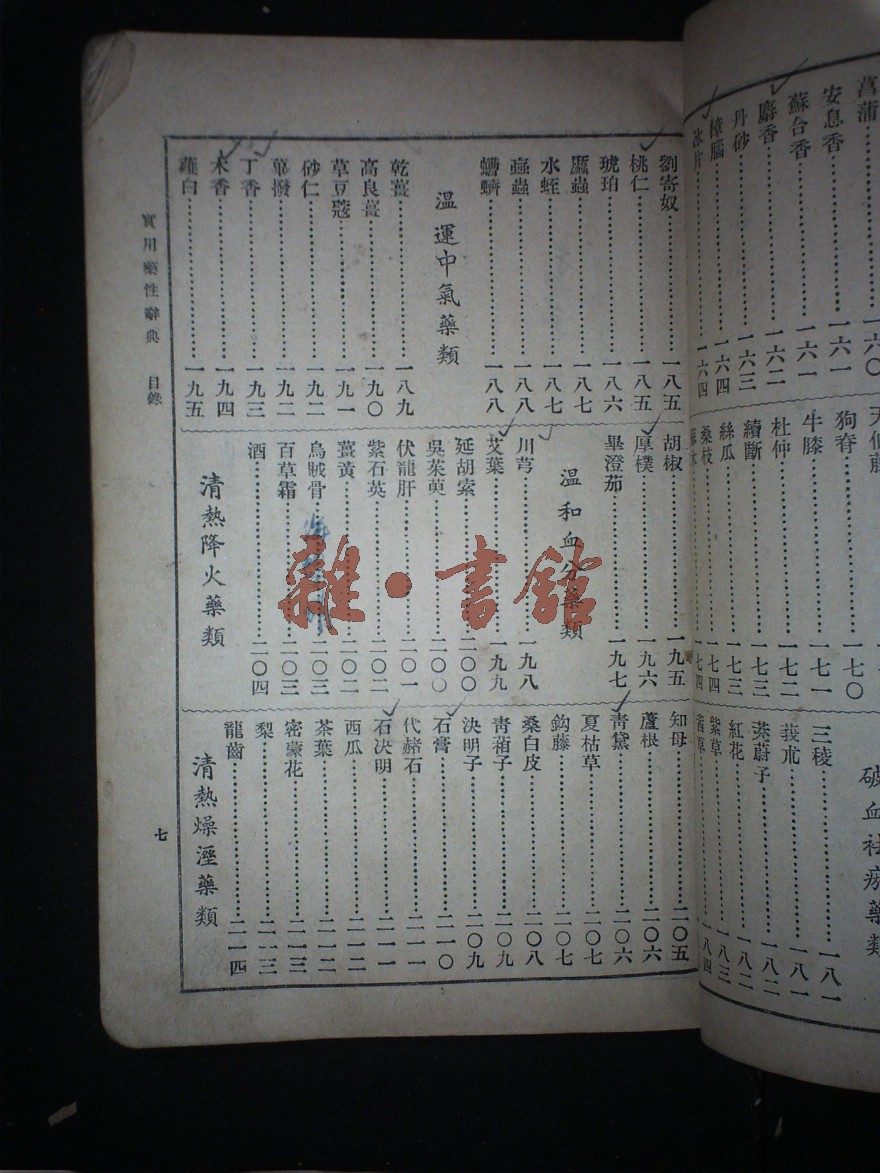 菖蒲……一六〇
安息香……一六一
蘇合香……一六一
麝香……一六二
丹砂……一六三
樟腦……一六四
冰片……一六四
狗脊……一七〇
牛膝……一七一
杜仲……一七二
續斷……一七三
絲瓜……一七三
桑枝……一七四
破血祛瘀藥類
三稜……一八一
莪朮……一八一
茺蔚子……一八二
紅花……一八二
紫草……一八三
茜草……一八四
劉寄奴……一八五
桃仁……一八五
琥珀……一八六
䗪蟲……一八七
水蛭……一八七
蝱蟲……一八八
蠐螬……一八八
溫運中氣藥類
乾薑……一八九
高良薑……一九〇
草豆蔻……一九一
砂仁……一九二
蓽撥……一九二
丁香……一九三
木香……一九四
薤白……一九五
胡椒……一九五
厚樸……一九六
畢澄茄……一九七
溫和血分藥類
川芎……一九八
艾葉……一九九
延胡索……二〇〇
吳茱萸……二〇〇
伏龍肝……二〇一
紫石英……二〇二
薑黃……二〇二
烏賊骨……二〇三
百草霜……二〇三
酒……二〇四
清熱降火藥類
知母……二〇五
蘆根……二〇六
青黛……二〇六
夏枯草……二〇七
鈎藤……二〇七
桑白皮……二〇八
青葙子……二〇九
決明子……二〇九
石膏……二一〇
代赭石……二一一
石決明……二一一
西瓜……二一二
茶葉……二一二
密蒙花……二一三
梨……二一三
龍齒……二一四
清熱燥溼藥類
實用藥性辭典 目錄
七
雜·書館